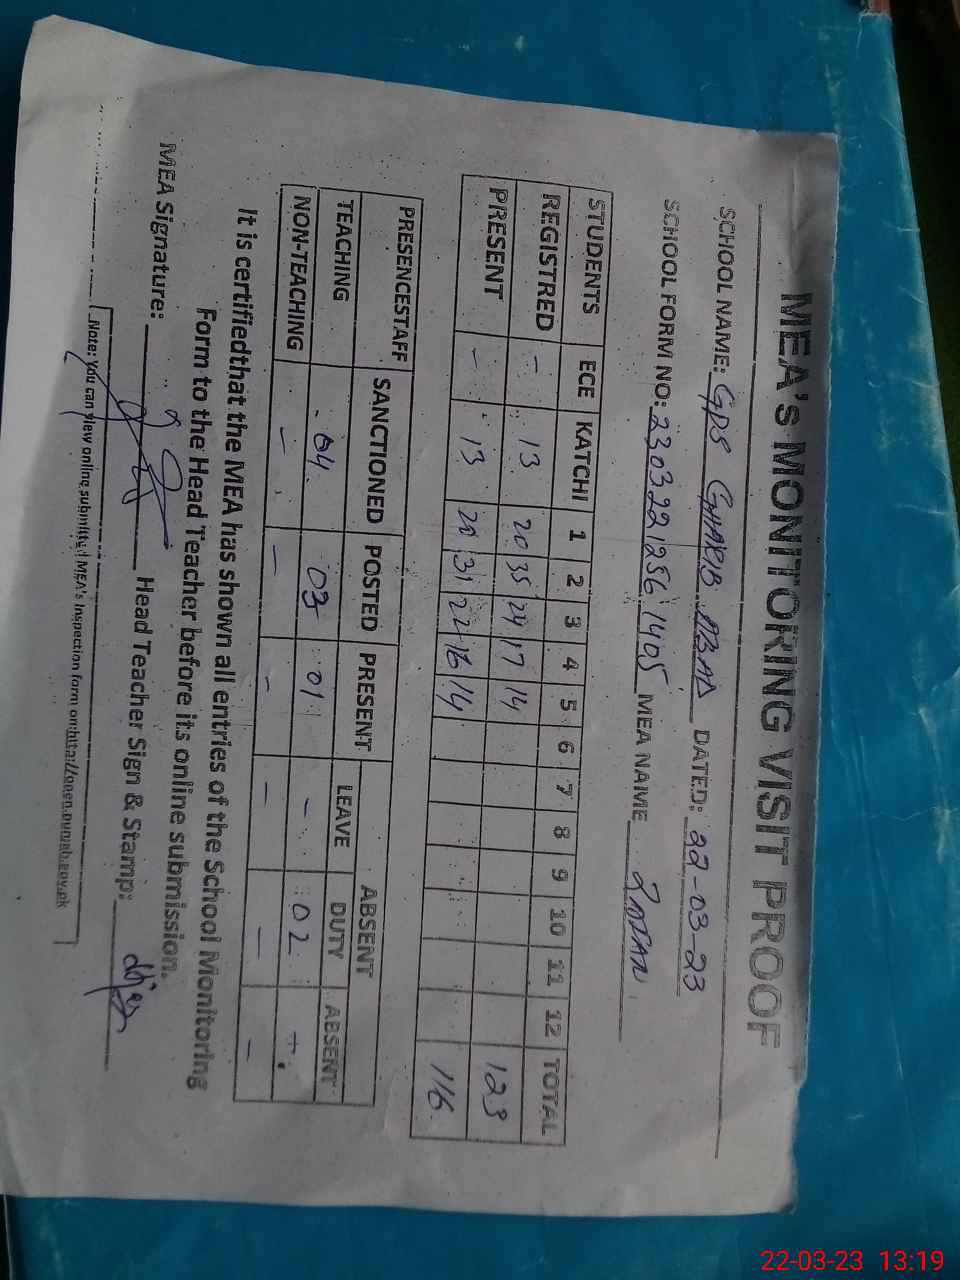 MEA's MONITORING VISIT PROOF
SCHOOL NAME: GPS GHARIB ABAD DATED: 22-03-23
SCHOOL FORM NO: 23032212561405 MEA NAME
STUDENTS ECE KATCHI 1 2 3 4 5 6 7 8 9 10 11 12 TOTAL
REGISTRED - 13 20 35 24 17 14 123
PRESENT - 13 20 31 22 16 14 116
PRESENCESTAFF SANCTIONED POSTED PRESENT ABSENT
LEAVE DUTY ABSENT
TEACHING 04 03 01 - 02 -
NON-TEACHING - - - - - -
It is certifiedthat the MEA has shown all entries of the School Monitoring
Form to the Head Teacher before its online submission.
MEA Signature: Head Teacher Sign & Stamp:
Note: You can view online submitted MEA's Inspection form on:http://open.punjab.gov.pk
22-03-23 13:19